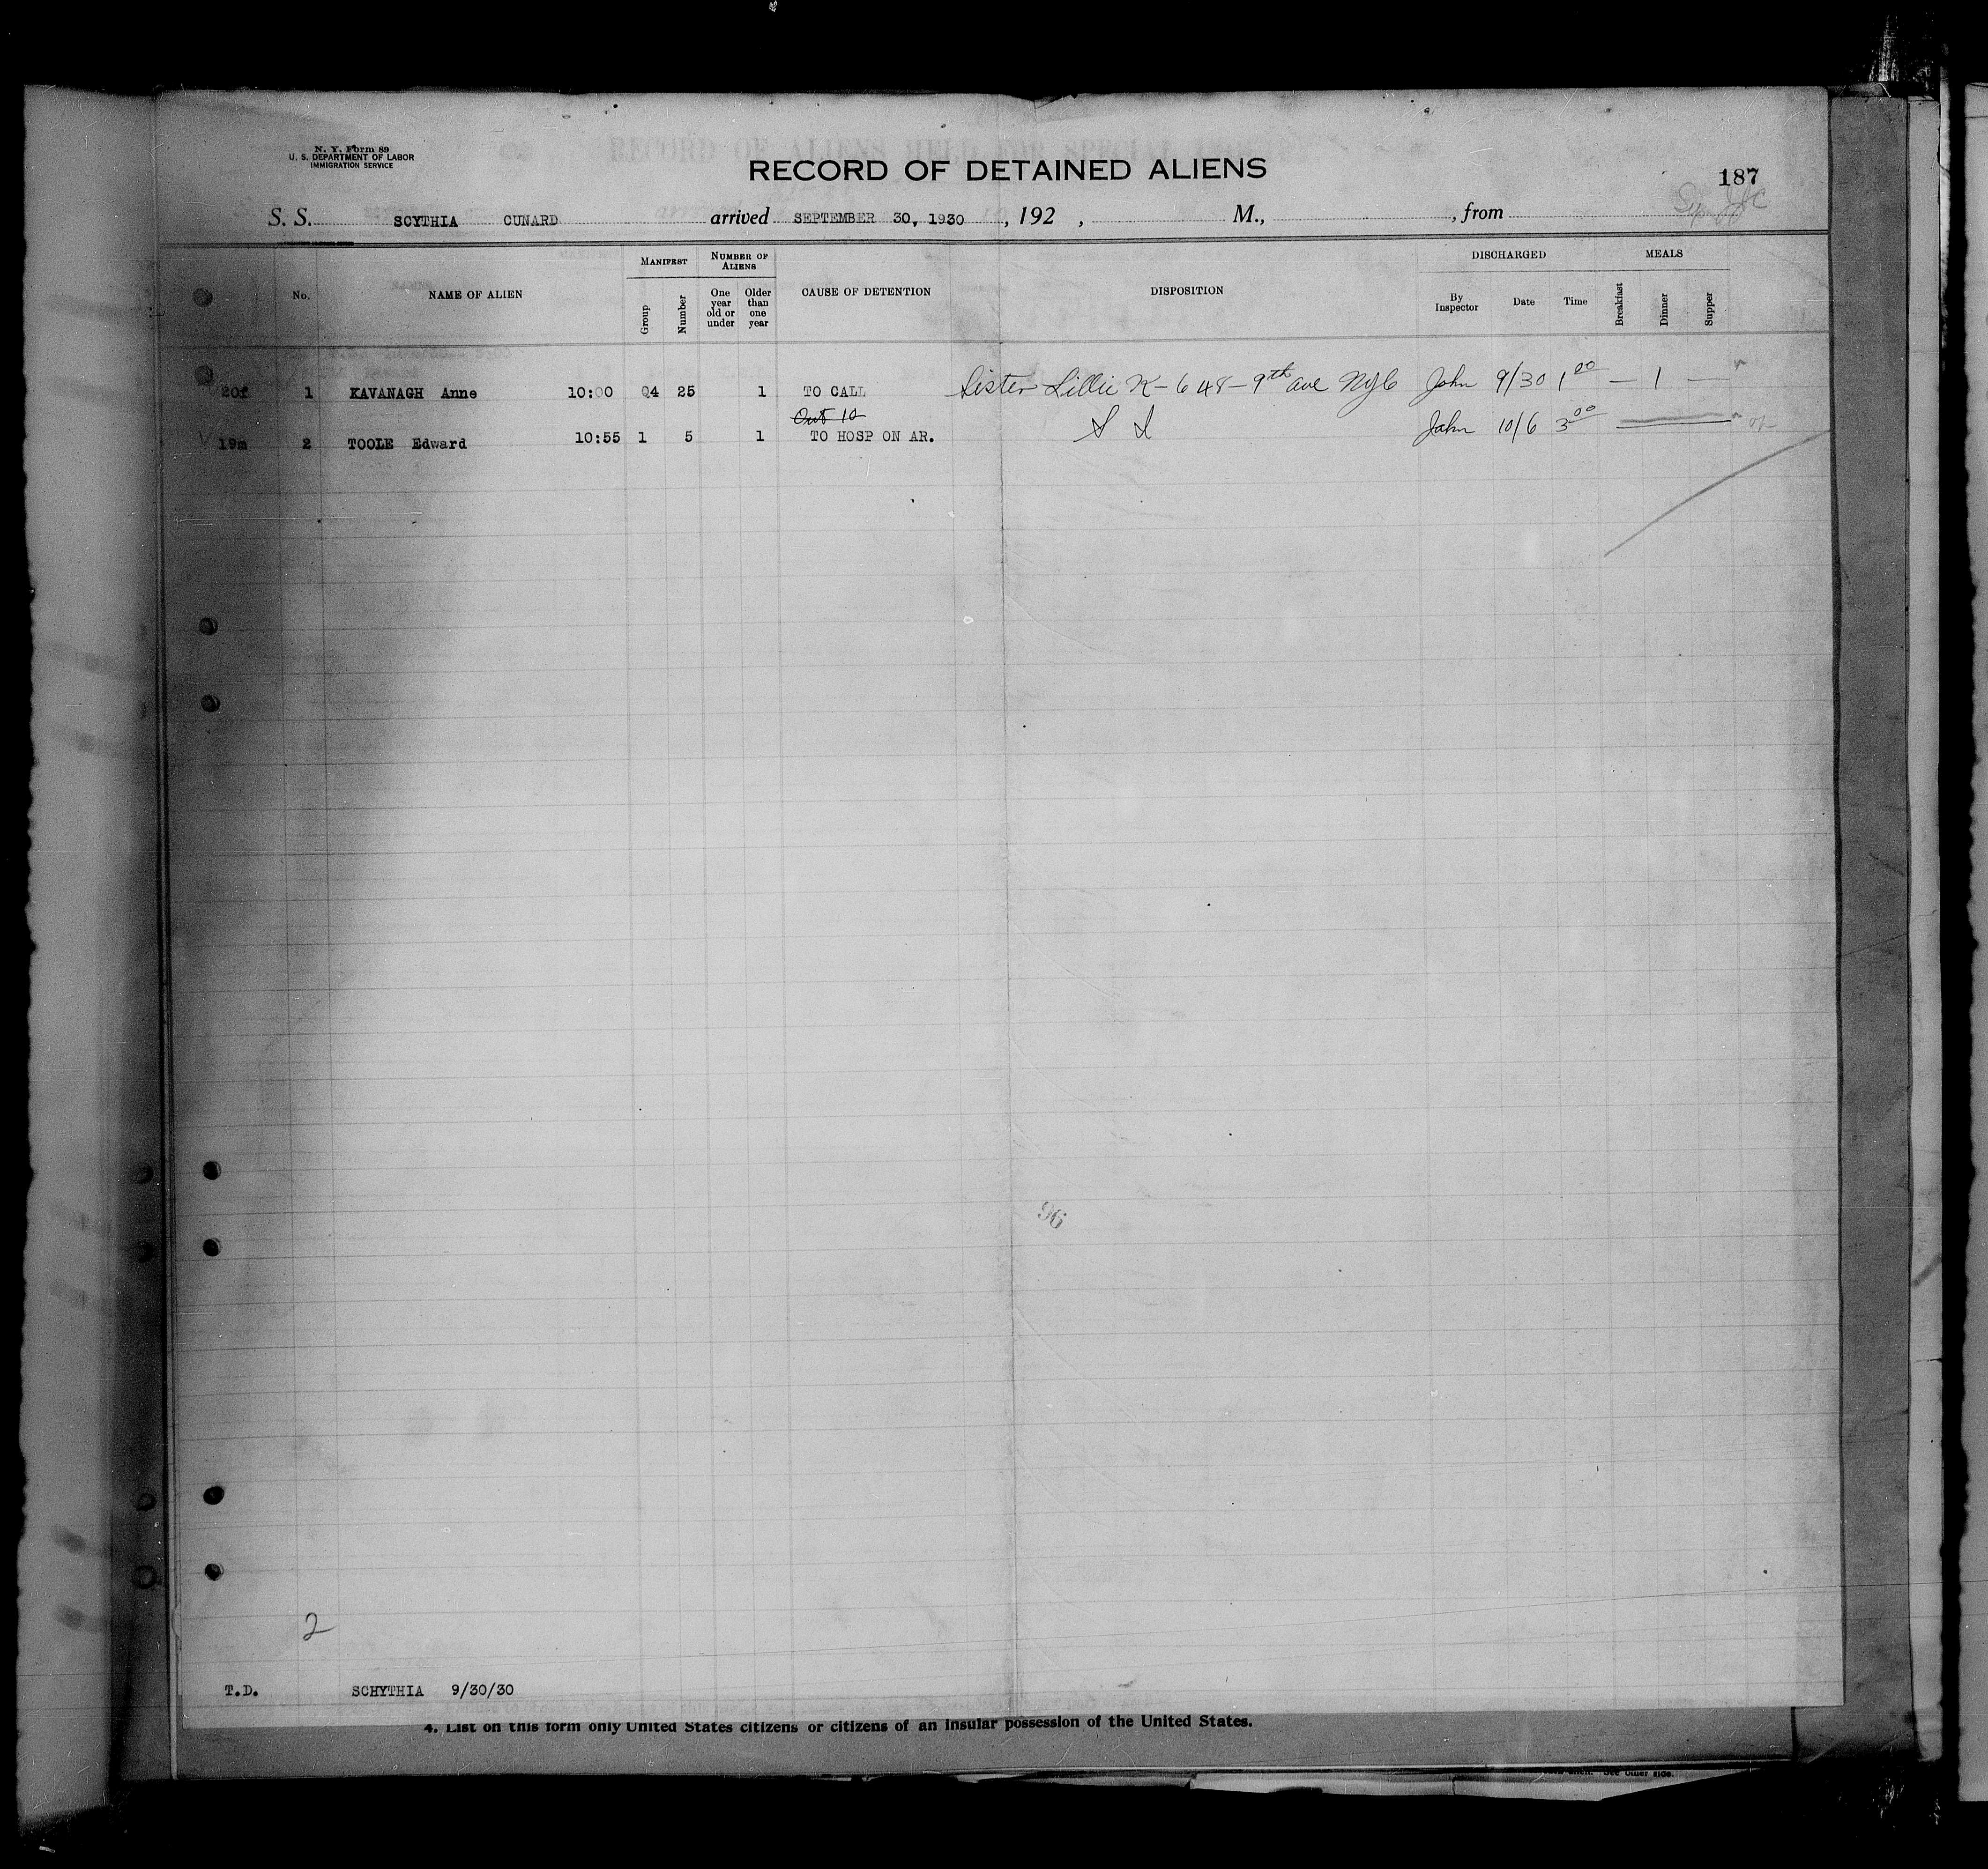 N. Y. Form 89
U. S. DEPARTMENT OF LABOR
IMMIGRATION SERVICE
RECORD OF DETAINED ALIENS
187
S. S. SCYTHIA CUNARD arrived SEPTEMBER 30, 1930, 192 , M., , from
No. NAME OF ALIEN MANIFEST Group Number NUMBER OF ALIENS One year old or under Older than one year CAUSE OF DETENTION DISPOSITION DISCHARGED By Inspector Date Time MEALS Breakfast Dinner Supper
20f 1 KAVANAGH Anne 10:00 Q4 25 1 TO CALL Sister Lillie K - 648 - 9th ave NYC John 9/30 1 00 — 1 —
Out 10
19m 2 TOOLE Edward 10:55 1 5 1 TO HOSP ON AR. S I John 10/6 3 00
96
2
T.D. SCHYTHIA 9/30/30
4. List on this form only United States citizens or citizens of an insular possession of the United States.
See other side.